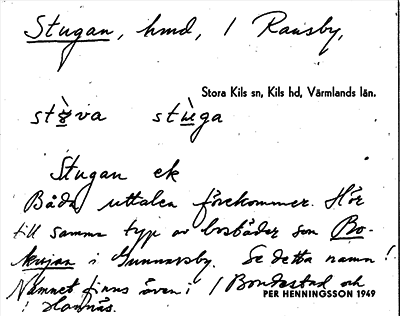 Stugan, hmd, / Ransby,
Stora Kils sn, Kils hd, Värmlands län.
Stugan ek
Båda uttalen förekommer. Hör
till samma typ av bosbäder som Bo-
kujan i Gunnarsby. Se detta namn!
Namnet finns även i / Bondestad och
i Hannäs.
PER HENNINGSSON 1949